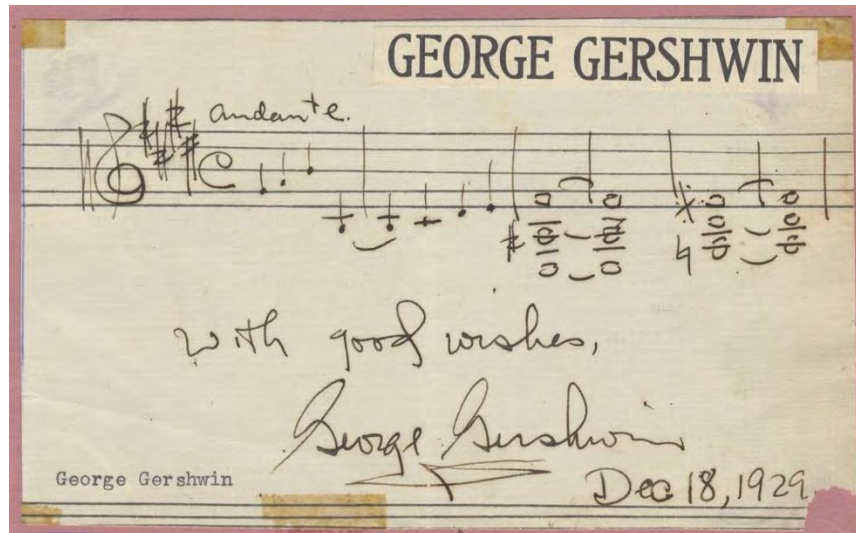 GEORGE GERSHWIN
andante.
with good wishes,
George Gershwin
George Gershwin
Dec 18, 1929